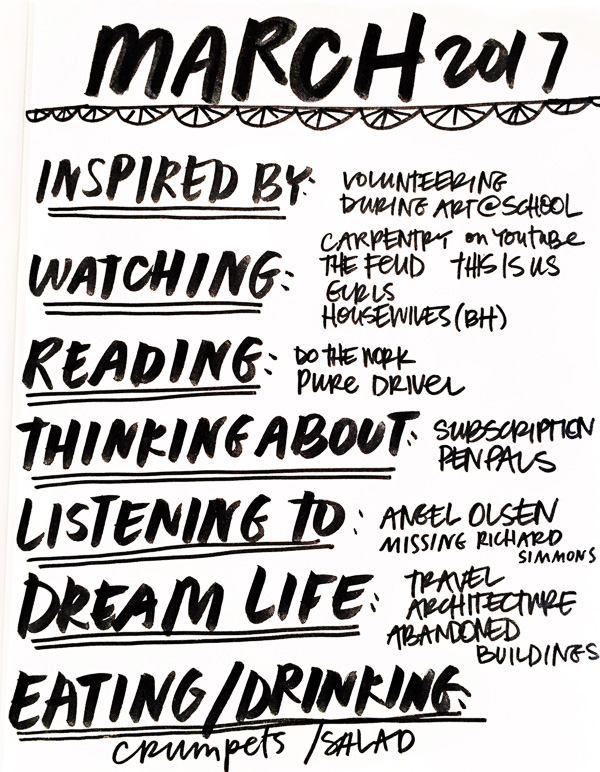 MARCH 2017
INSPIRED BY: VOLUNTEERING
DURING ART@SCHOOL
WATCHING: CARPENTRY on YouTube
THE FEUD THIS IS US
GIRLS
HOUSEWIVES (BH)
READING: DO THE WORK
PURE DRIVEL
THINKING ABOUT: SUBSCRIPTION
PENPALS
LISTENING TO: ANGEL OLSEN
MISSING RICHARD
SIMMONS
DREAM LIFE: TRAVEL
ARCHITECTURE
ABANDONED
BUILDINGS
EATING/DRINKING:
crumpets /SALAD